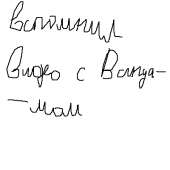 вспомнил
видео с Волнуа-
-мом